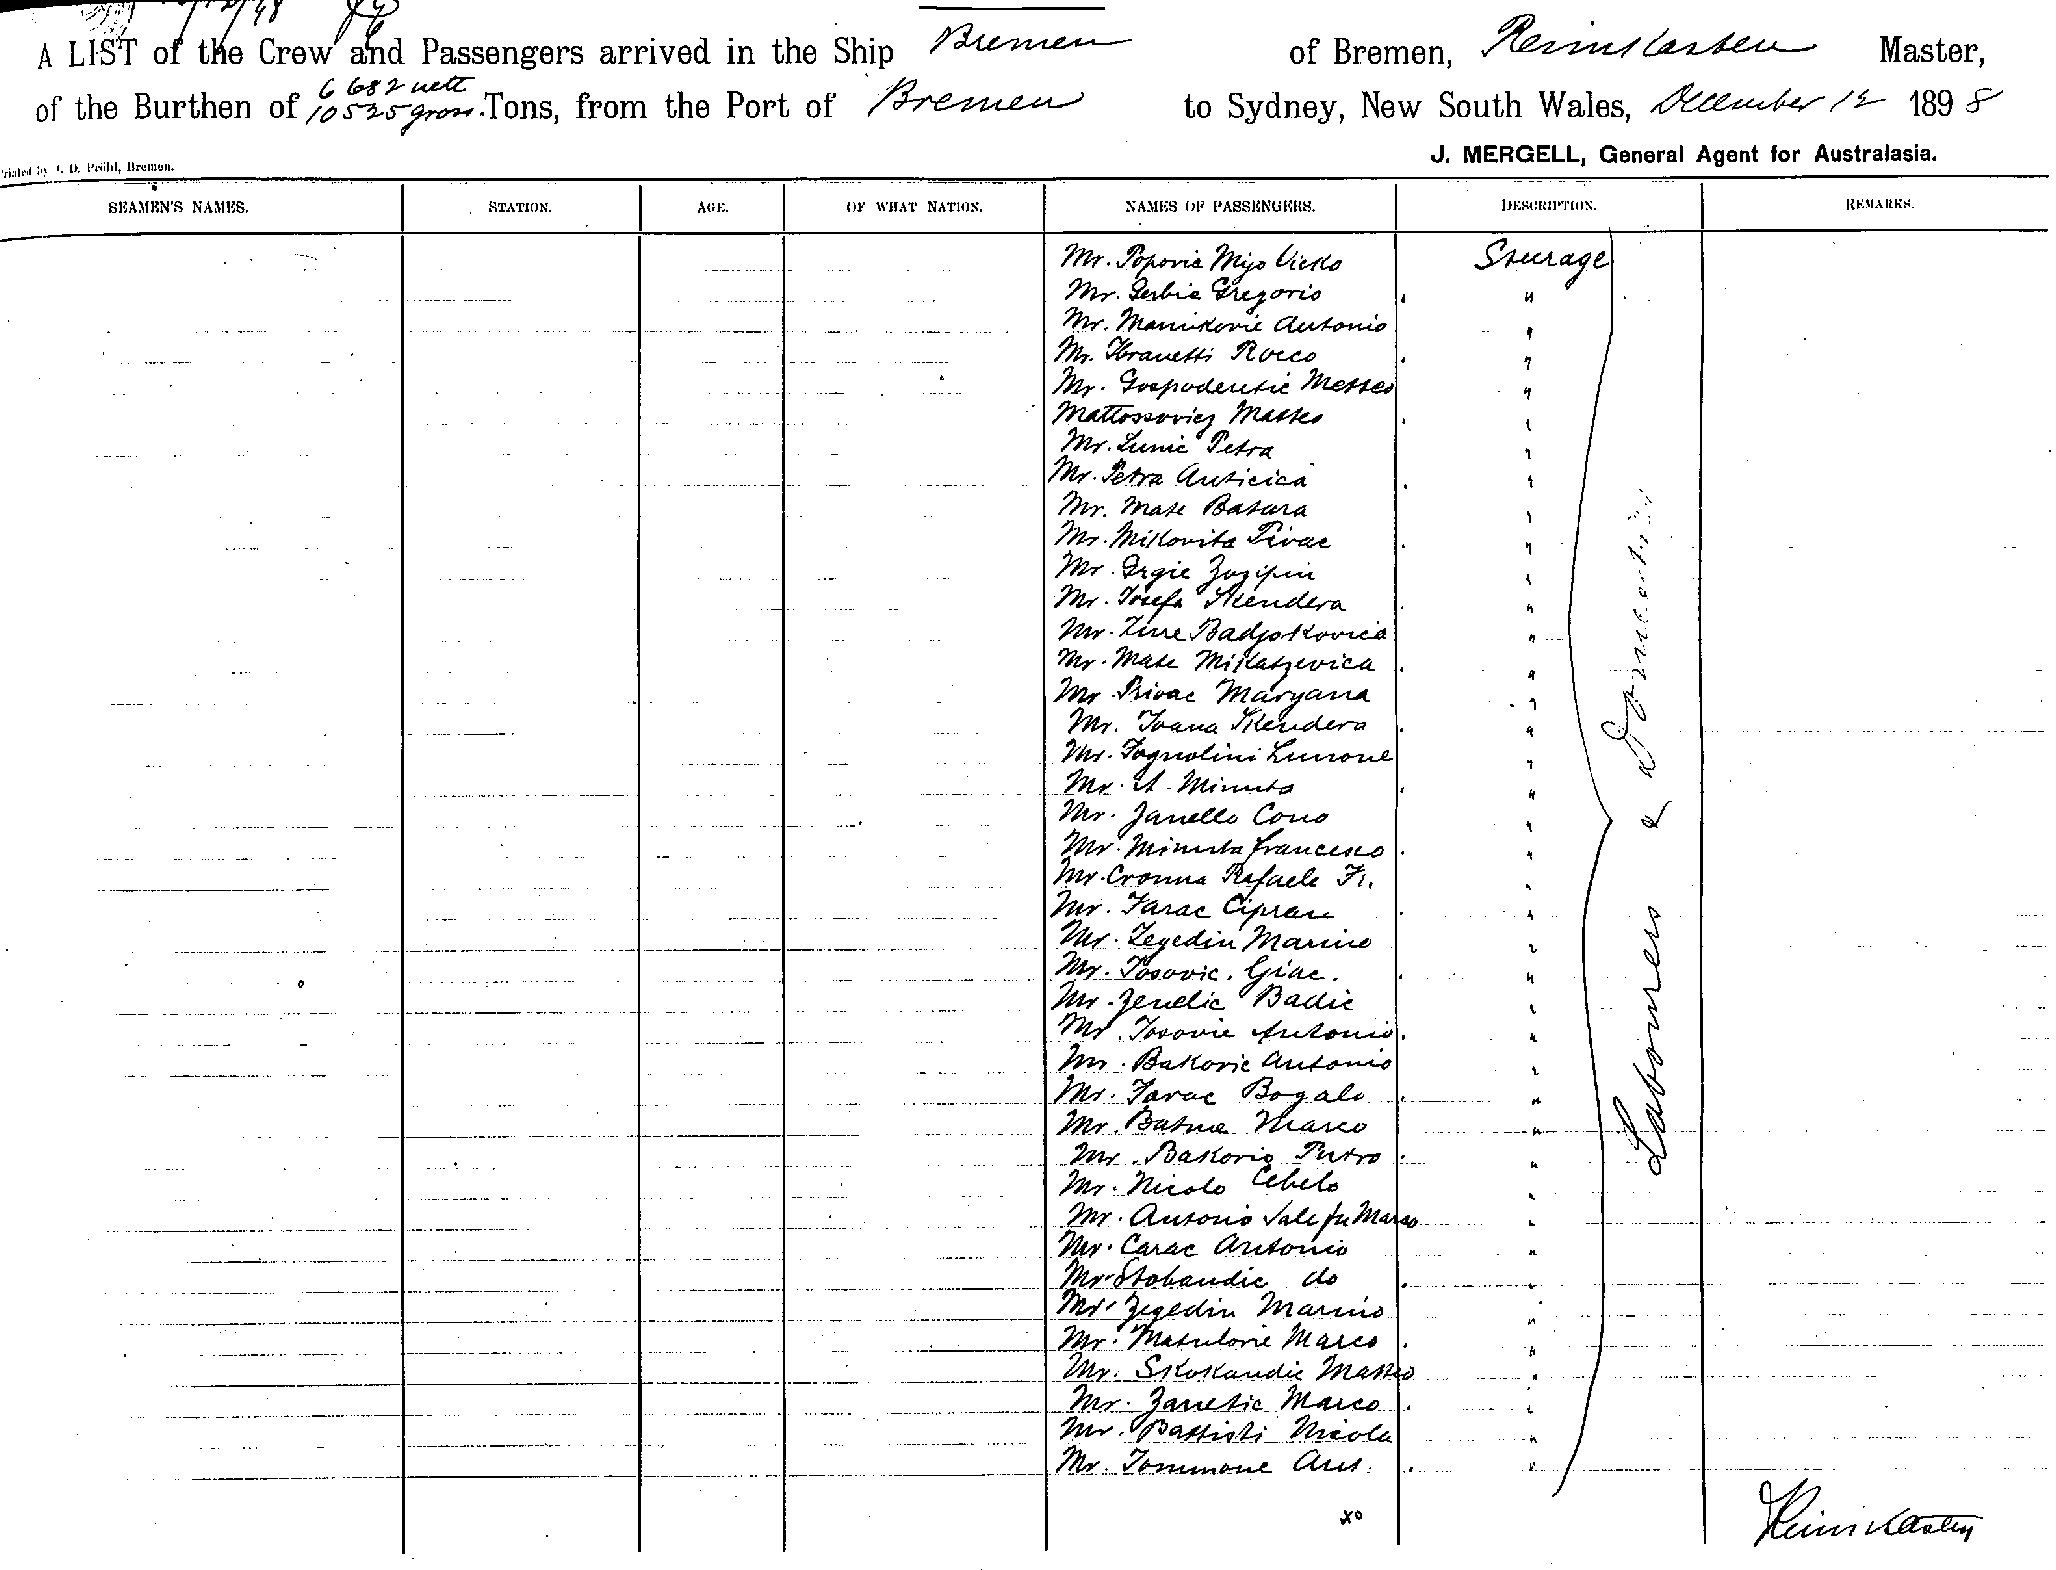 A LIST of the Crew and Passengers arrived in the Ship Bremen of Bremen, Reimkasten Master,
6682 nett
of the Burthen of 10525 gross Tons, from the Port of Bremen to Sydney, New South Wales, December 12 1898
J. MERGELL, General Agent for Australasia.
Printed by J. D. Pröhl, Bremen.
SEAMEN'S NAMES. STATION. AGE. OF WHAT NATION. NAMES OF PASSENGERS. DESCRIPTION. REMARKS.
Mr. Popovic Mijo Vicko Steurage
Mr. Gerbic Gregorio "
Mr. Marinkovic Antonio "
Mr. Rocco "
Mr. Gospodenetic Matteo "
Mattossovicz Matteo "
Mr. Lunic Petra "
Mr. Petra Anticica "
Mr. Mate Batura "
Mr. Mikovita Pivac "
Mr. Grgic "
Mr. Josefa Skendera "
Mr. Badjokovica "
Mr. Mate Mikatzevica "
Mr. Pivac Maryana "
Mr. Ivana Skendera "
Mr. Tognolini "
Mr. A. Minuto "
Mr. Zanello Cono "
Mr. Minuto Francesco "
Mr. Cronna Rafaele Fr. "
Mr. Farac Ciprian "
Mr. Zegedin Marino "
Mr. Tosovic. Giac. "
Mr. Zenclic Badic "
Mr. Tosovic Antonio "
Mr. Bakovic Antonio "
Mr. Farac Bogalo "
Mr. Marco "
Mr. Bakovic Pietro "
Mr. Nicolo Cebelo "
Mr. Antonio Sale fu Marco "
Mr. Carac Antonio "
Mr. do "
Mr. Zegedin Marino "
Mr. Matulovic Marco "
Mr. Skokandic Matteo "
Mr. Zanetic Marco "
Mr. Battisti Nicola "
Mr. Tommone Ant. "
Labourers & Domestics
40
Reimkasten